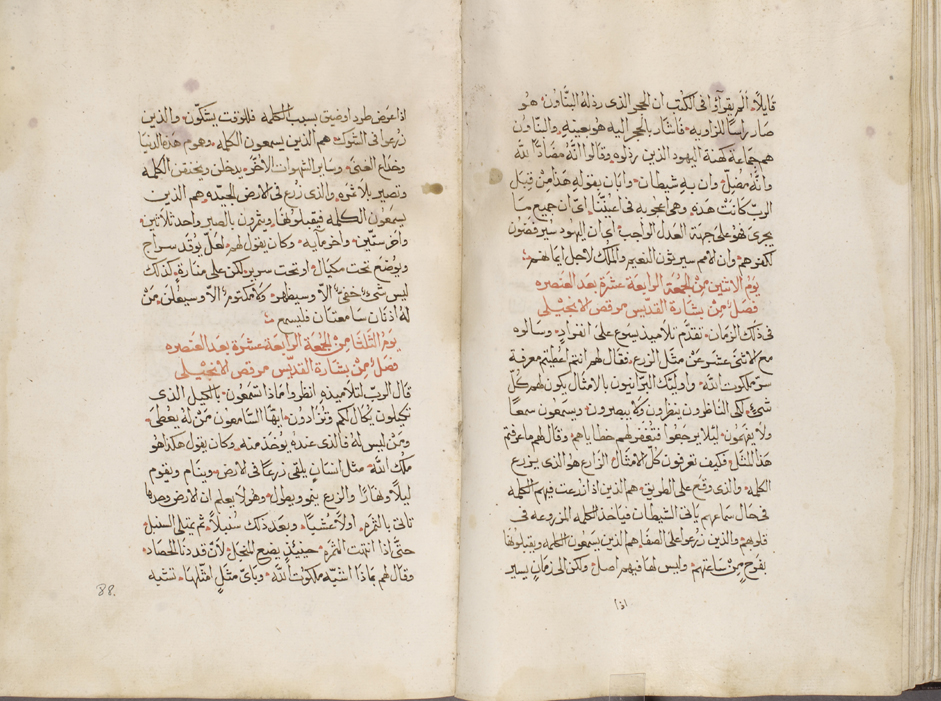 قايلاً ألم يقرأوا في الكتب ان الحجر الذي رذله البنّاون هو
صار راساً للزاويه فأشار بالحجر اليه هو بعينه والبنّاون
هم جماعة كهنة اليهود الذين رذلوه وقالوا انّه مضادًا لله
وانّه مضلّ وان به شيطان وابان بقوله هذا من قبل
الربّ كانت هذه وهي اعجوبه في اعيننا اي ان جميع ما
يجري فهو على جهة العدل الواجب اي ان اليهود سيرفضون
لكفرهم وان الامم سيرثون النعيم والملك لاجل ايمانهم
يوم الاثنين من الجمعة الرابعة عشرة بعد العنصره
فصل من بشارة القديس مرقص الانجيلي
في ذلك الزمان تقدّم تلاميذ يسوع على انفراد وسالوه
مع الاثنى عشر عن مثل الزرع فقال لهم انتم اعطيتم معرفة
سرّ ملكوت الله واوليك البرّانيون بالامثال يكون لهم كلّ
شيء لكي الناظرون ينظرون ولا يبصرون ويسمعون سمعاً
ولا يفهمون ليلا يرجعوا فتغفر لهم خطاياهم وقال لهم ما عرفتم
هذا المثل فكيف تعرفون كلّ الامثال الزارع هو الذي يزرع
الكلمه والذي وقع على الطريق هم الذين اذا زرعت فيهم الكلمه
في حال سماعهم ياتي الشيطان فياخذ الكلمه المزروعه في
قلوبهم والذين زرعوا على الصفا هم الذين يسمعون الكلمه ويقبلونها
بفرح من ساعتهم وليس لها فيهم اصل ولكن الى زمان يسير
اذا
اذا عرض طرد او ضيق بسبب الكلمه فللوقت يشكّون والذين
زرعوا في الشوك هم الذين يسمعون الكلمه وهموم هذه الدنيا
وخداع الغنى وساير الشهوات الاخر يدخلن ويخنقن الكلمه
وتصير بلا ثمره والذي زرع في الارض الجيده هم الذين
يسمعون الكلمه فيقبلونها ويثمرون بالصبر واحد ثلاثين
واخر ستّين واخر مايه وكان يقول لهم لعلّ يوقد سراج
ويوضع تحت مكيال او تحت سرير لكن على مناره كذلك
ليس شيء خفي الاّ وسيظهر ولا مكتوم الاّ وسيعلن من
له اذنان سامعتان فليسمع
يوم الثلثا من الجمعة الرابعة عشرة بعد العنصره
فصل من بشارة القديس مرقص الانجيلي
قال الربّ لتلاميذه انظروا ماذا تسمعون بالكيل الذي
تكيلون يكال لكم وتزادون ايّها السّامعون من له يعطى
ومن ليس له فالذي عنده يوخذ منه وكان يقول هكذا هو
ملك الله مثل انسان يلقي زرعاً في الارض وينام ويقوم
ليلاً ونهارًا والزرع ينمو ويطول وهو لا يعلم ان الارض وحدها
تاتي بالثمره اولاً عشباً وبعد ذلك سنبلاً ثم يمتلي السنبل
حتّى اذا انتهت الثمره حينيذ يضع المنجل لان قد دنا الحصاد
وقال لهم بماذا اشبّه ملكوت الله وباى مثل امثّلها تشبه
88.